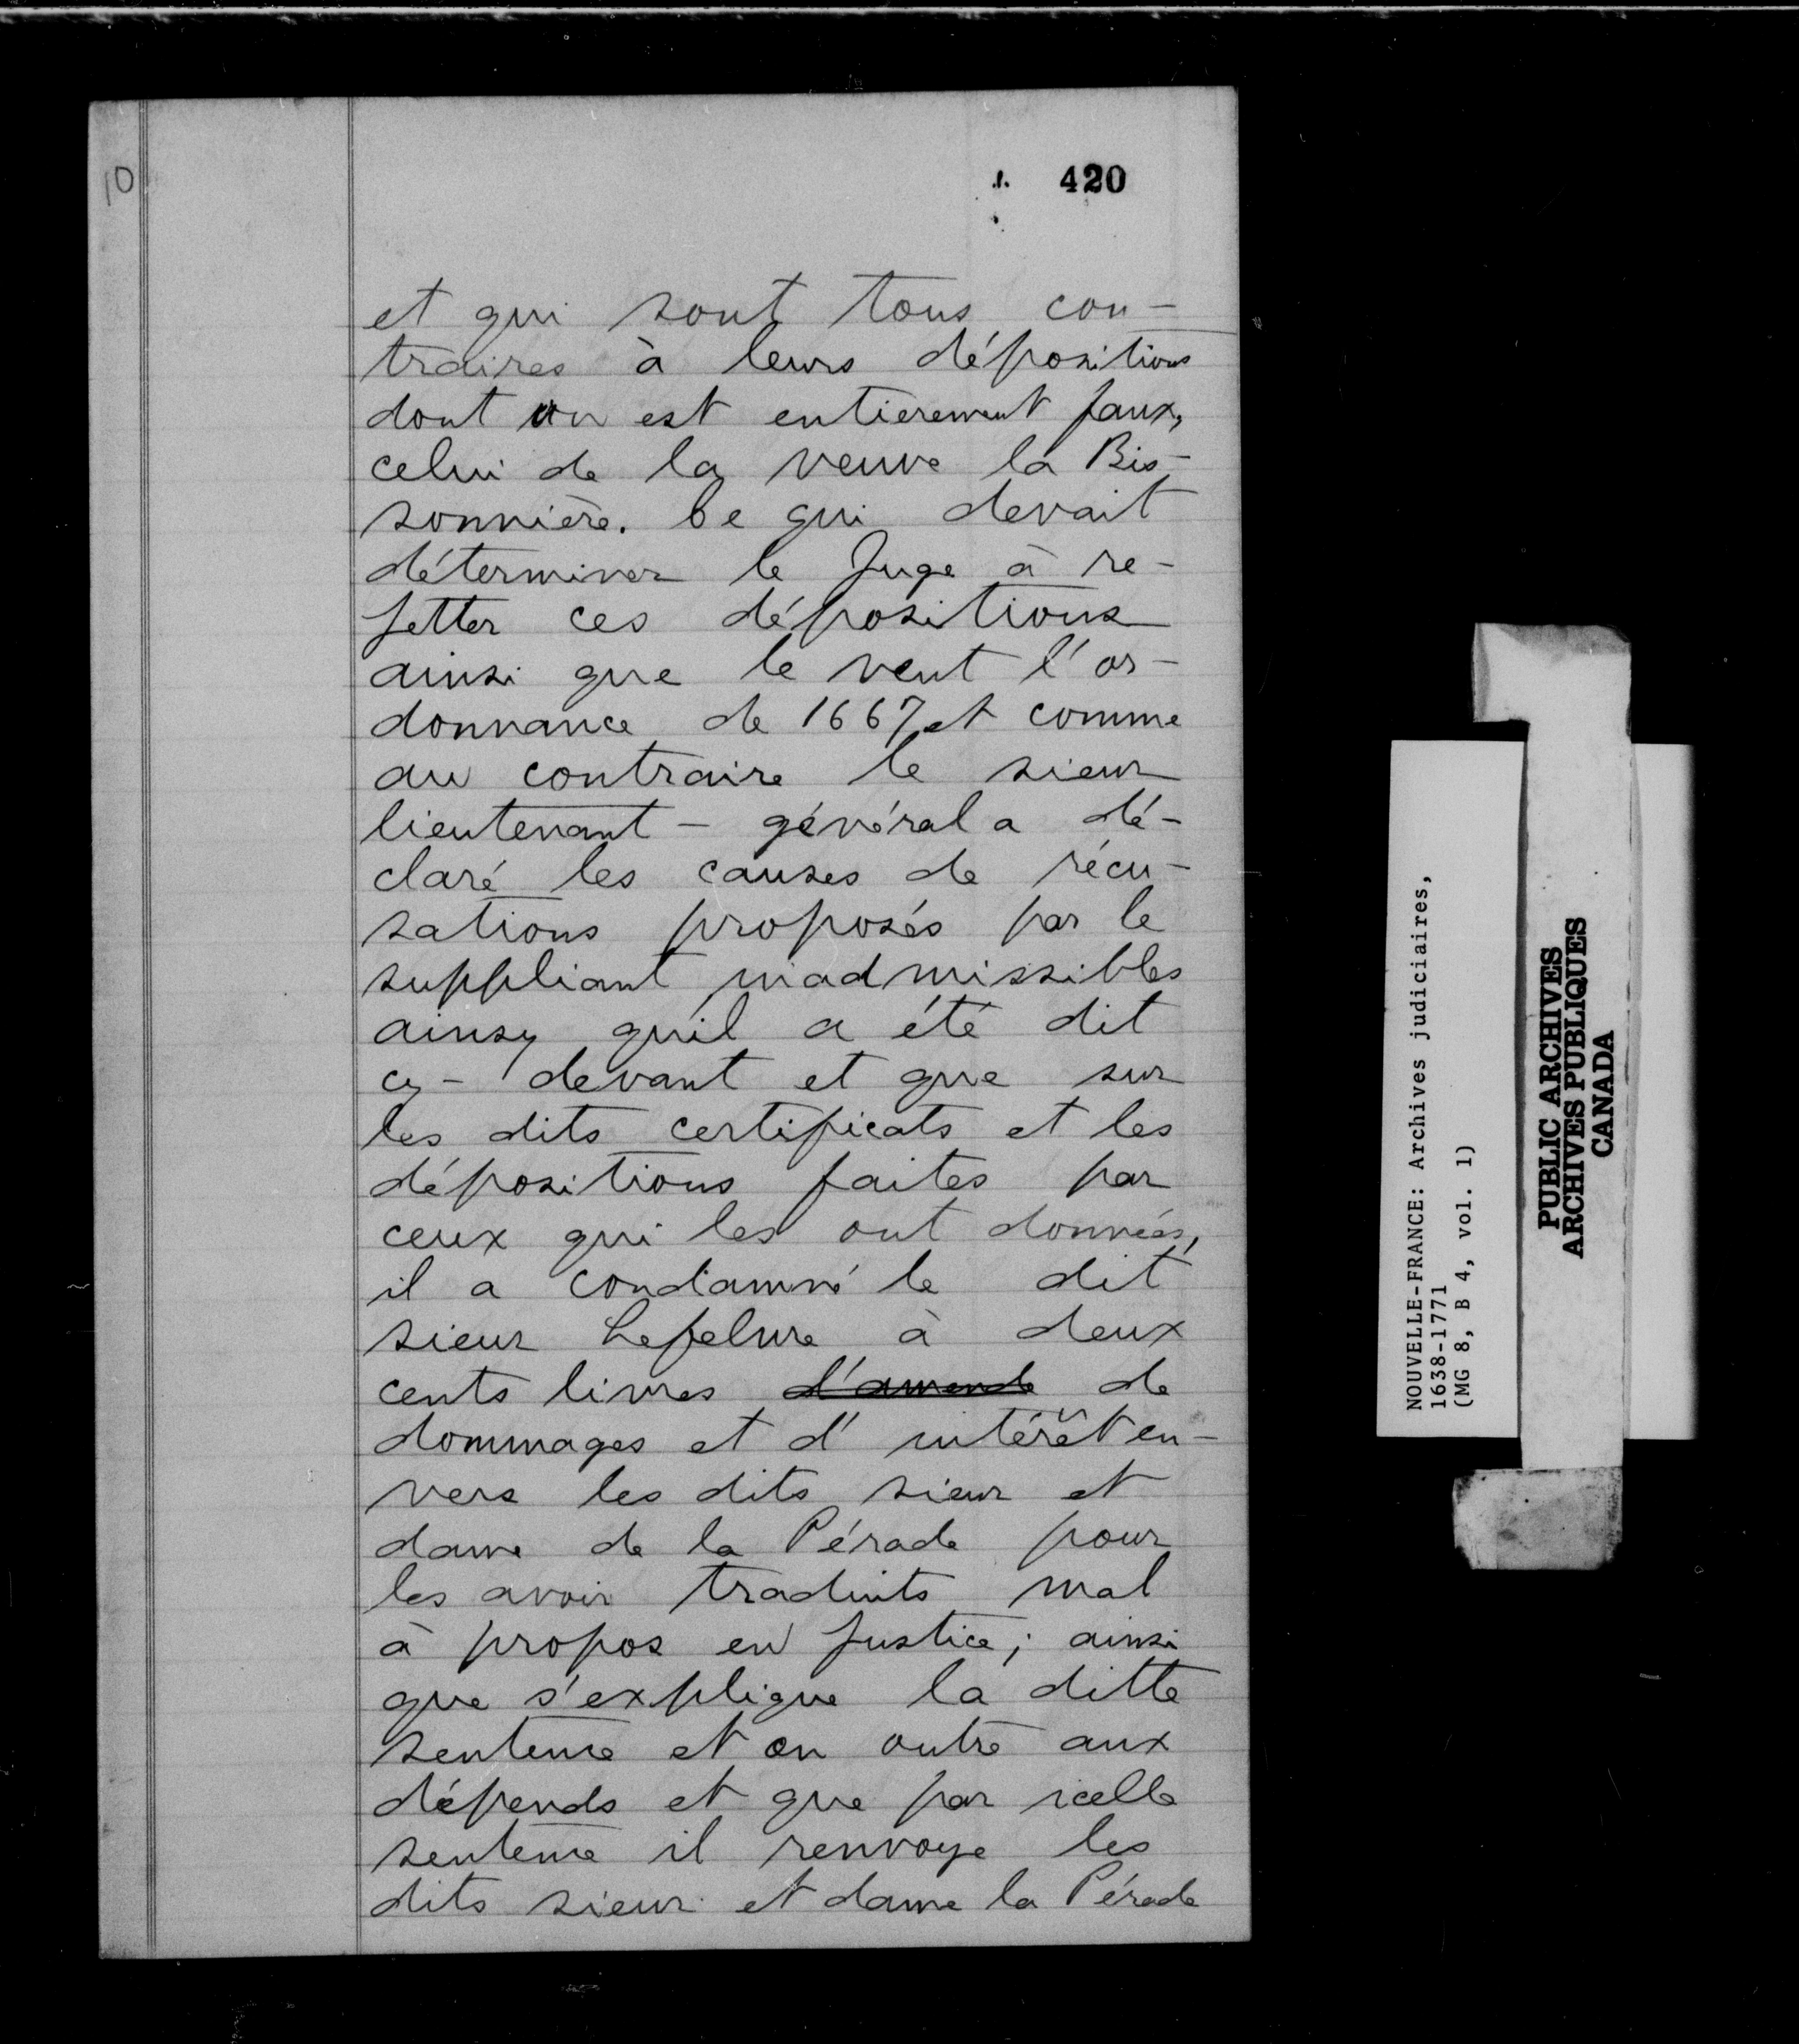 10
420
et qui sont tous con-
traires à leurs dépositions
dont un est entierement faux,
celui de la veuve la Bis-
sonnière. Ce qui devait
déterminer le Juge à re-
jetter ces dépositions
ainsi que le veut l'or-
donnance de 1667 et comme
au contraire le sieur
lieutenant - général a dé-
claré les causes de récu-
sations proposés par le
suppliant inadmissibles
ainsy qu'il a été dit
cy - devant et que sur
les dits certificats et les
dépositions faites par
ceux qui les ont donnés,
il a condamné le dit
sieur Lefebvre à deux
cents livres d'amende de
dommages et d'intérêt en-
vers les dits sieur et
dame de la Pérade pour
les avoir traduits mal
à propos en Justice; ainsi
que s'explique la ditte
sentence et en outre aux
dépends et que par icelle
sentence il renvoye les
dits sieur et dame la Pérade
NOUVELLE-FRANCE: Archives judiciaires,
1638-1771
(MG 8, B 4, vol. 1)
PUBLIC ARCHIVES
ARCHIVES PUBLIQUES
CANADA